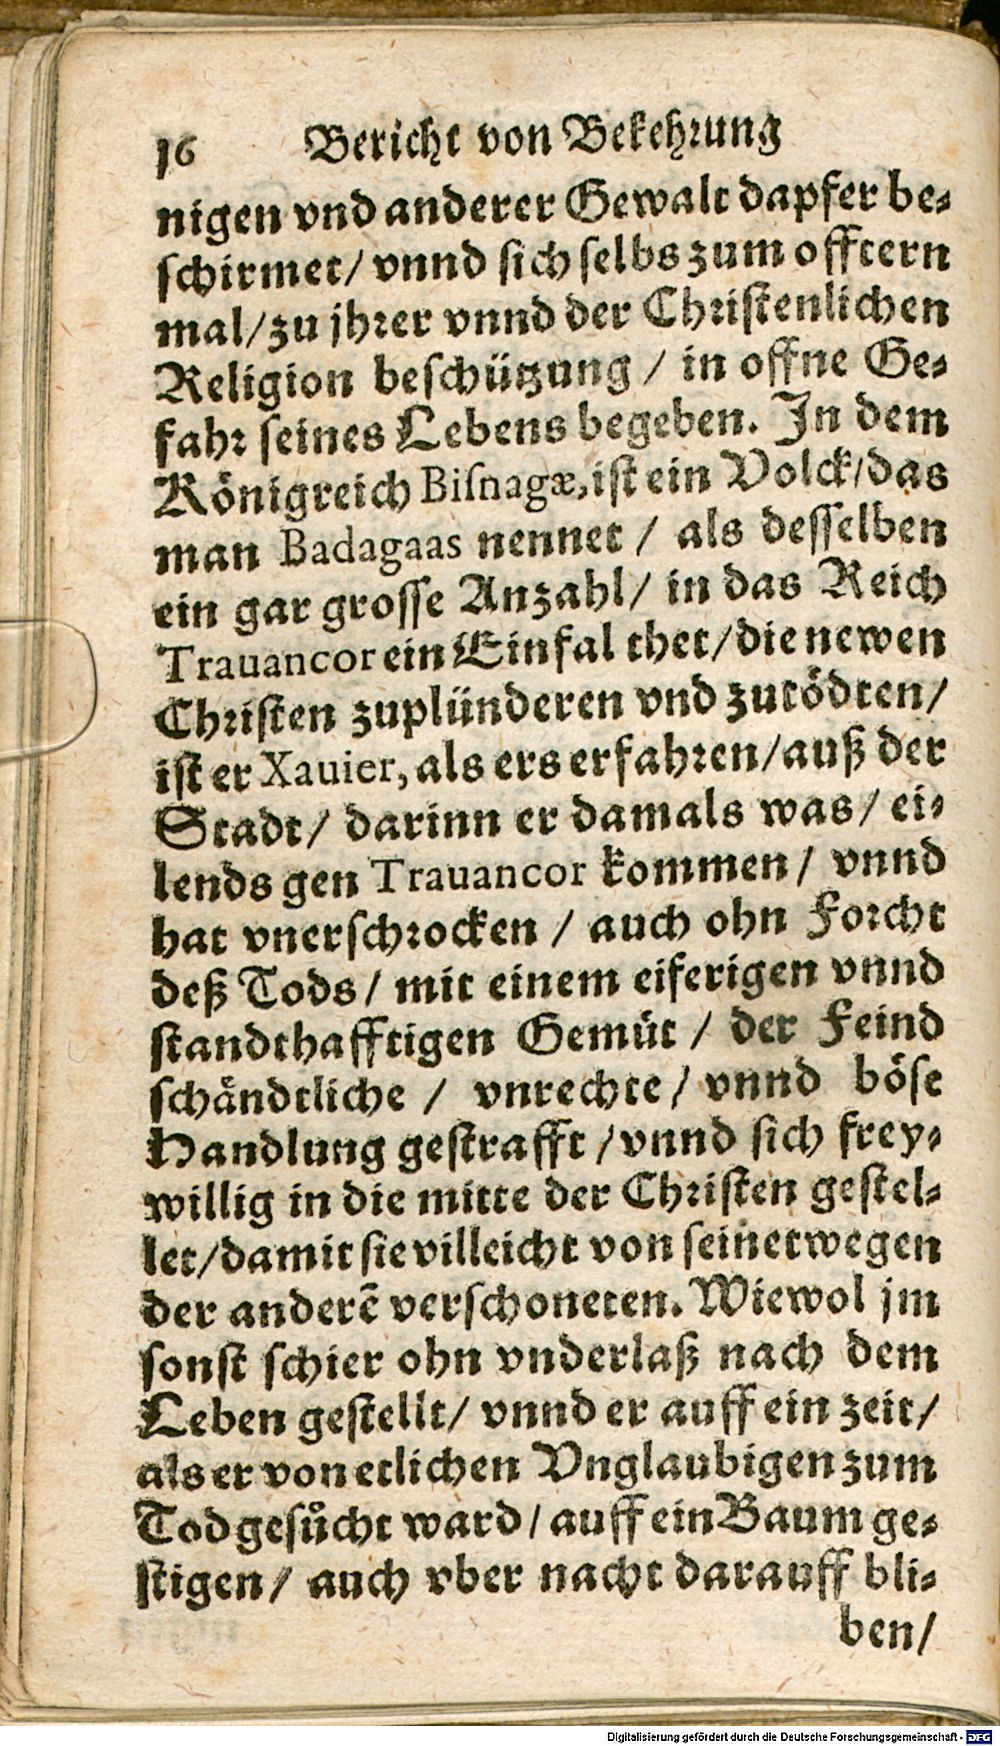 16 Bericht von Bekehrung
nigen vnd anderer Gewalt dapfer be⸗
schirmet/ vnnd sich selbs zum offtern
mal/ zu jhrer vnnd der Christenlichen
Religion beschützung / in offne Ge⸗
fahr seines Lebens begeben. In dem
Königreich Bisnagæ, ist ein Volck/ das
man Badagaas nennet / als desselben
ein gar grosse Anzahl/ in das Reich
Trauancor ein Einfal thet/ die newen
Christen zuplünderen vnd zutödten/
ist er Xauier, als ers erfahren/ auß der
Stadt/ darinn er damals was/ ei⸗
lends gen Trauancor kommen/ vnnd
hat vnerschrocken / auch ohn Forcht
deß Tods/ mit einem eiferigen vnnd
standthafftigen Gemüt / der Feind
schändtliche / vnrechte/ vnnd böse
Handlung gestrafft / vnnd sich frey⸗
willig in die mitte der Christen gestel⸗
let/ damit sie villeicht von seinetwegen
der anderẽ verschoneten. Wiewol jm
sonst schier ohn vnderlaß nach dem
Leben gestellt/ vnnd er auff ein zeit/
als er von etlichen Vnglaubigen zum
Tod gesůcht ward/ auff ein Baum ge⸗
stigen/ auch vber nacht darauff bli⸗
ben/
Digitalisierung gefördert durch die Deutsche Forschungsgemeinschaft - DFG